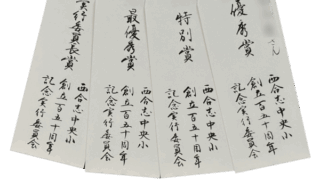 優秀賞
さん
西合志中央小
創立百五十周年
記念実行委員会
特別賞
西合志中央小
創立百五十周年
記念実行委員会
最優秀賞
西合志中央小
創立百五十周年
記念実行委員会
実行委員長賞
西合志中央小
創立百五十周年
記念実行委員会